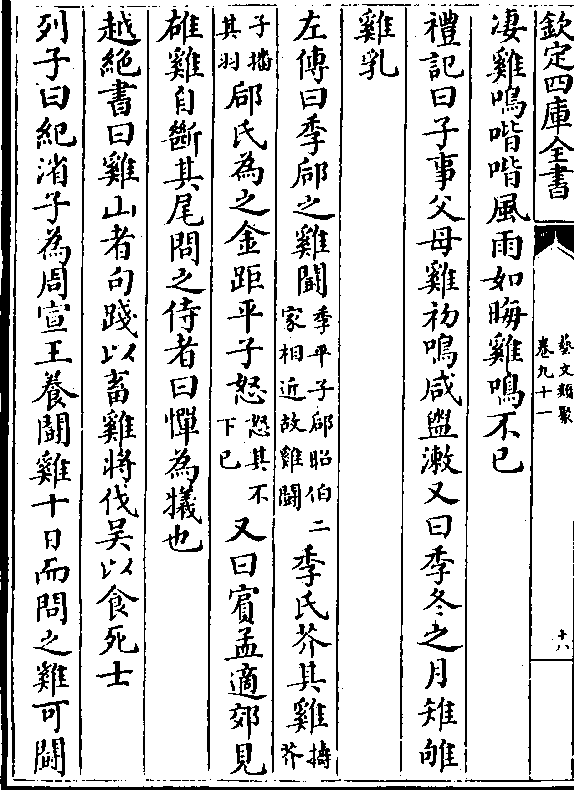 欽定四庫全書
藝文類聚
卷九十一
十八
凄雞鳴喈喈風雨如晦雞鳴不已
禮記曰子事父母雞初鳴咸盥漱又曰季冬之月雉雊
雞乳
左傳曰季郈之雞鬭季平子郈昭伯二家相近故雞鬭季氏芥其雞擣芥
子播其羽郈氏為之金距平子怒怒其不下已又曰賓孟適郊見
雄雞自斷其尾問之侍者曰憚為犧也
越絶書曰雞山者句踐以畜雞將伐吳以食死士
列子曰紀渻子為周宣王養鬭雞十日而問之雞可鬭